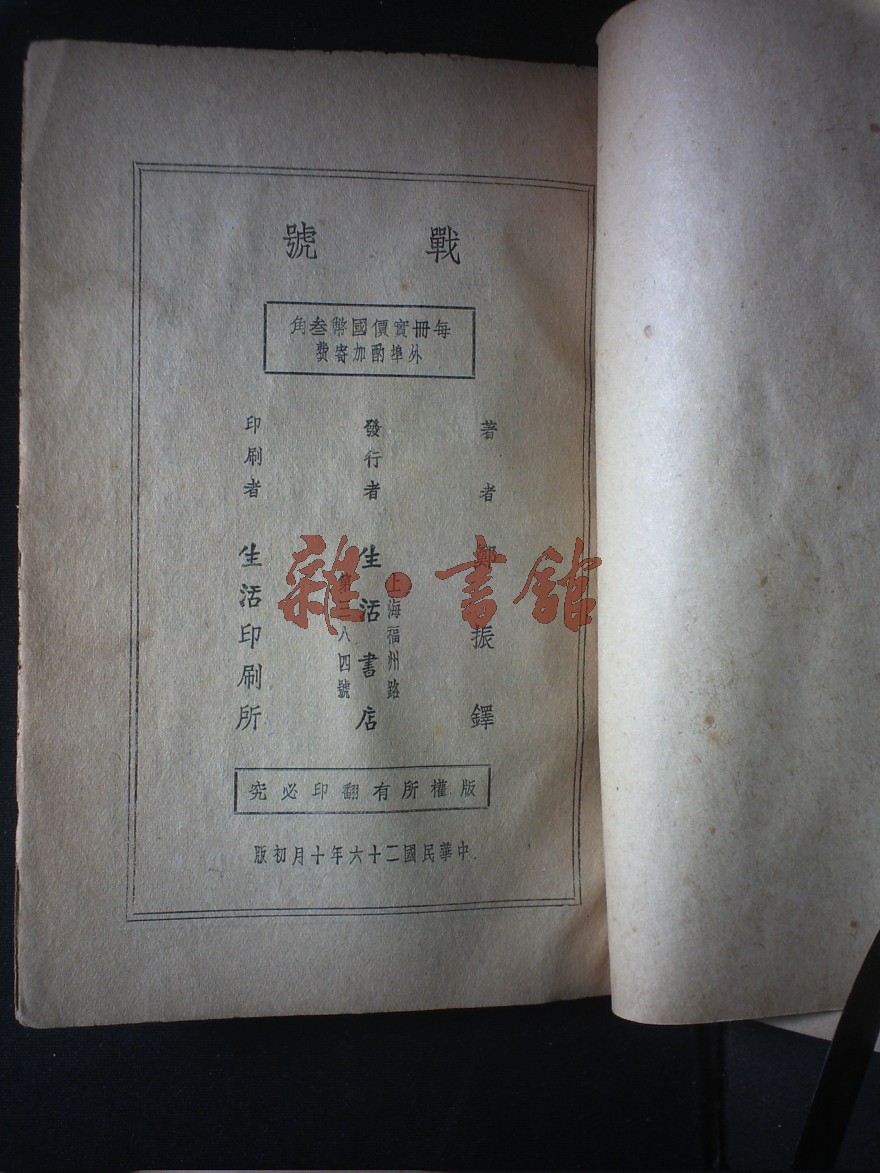 戰號
每冊實價國幣叁角
外埠酌加寄費
著者 鄭振鐸
發行者 生活書店
上海福州路
第三八四號
印刷者 生活印刷所
版權所有翻印必究
中華民國二十六年十月初版
雜·書館